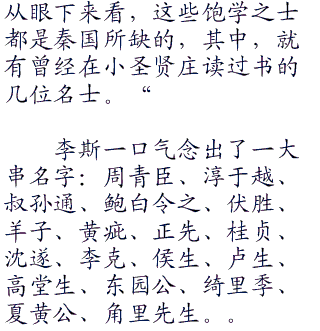 从眼下来看，这些饱学之士
都是秦国所缺的，其中，就
有曾经在小圣贤庄读过书的
几位名士。“
李斯一口气念出了一大
串名字：周青臣、淳于越、
叔孙通、鲍白令之、伏胜、
羊子、黄疵、正先、桂贞、
沈遂、李克、侯生、卢生、
高堂生、东园公、绮里季、
夏黄公、角里先生。。